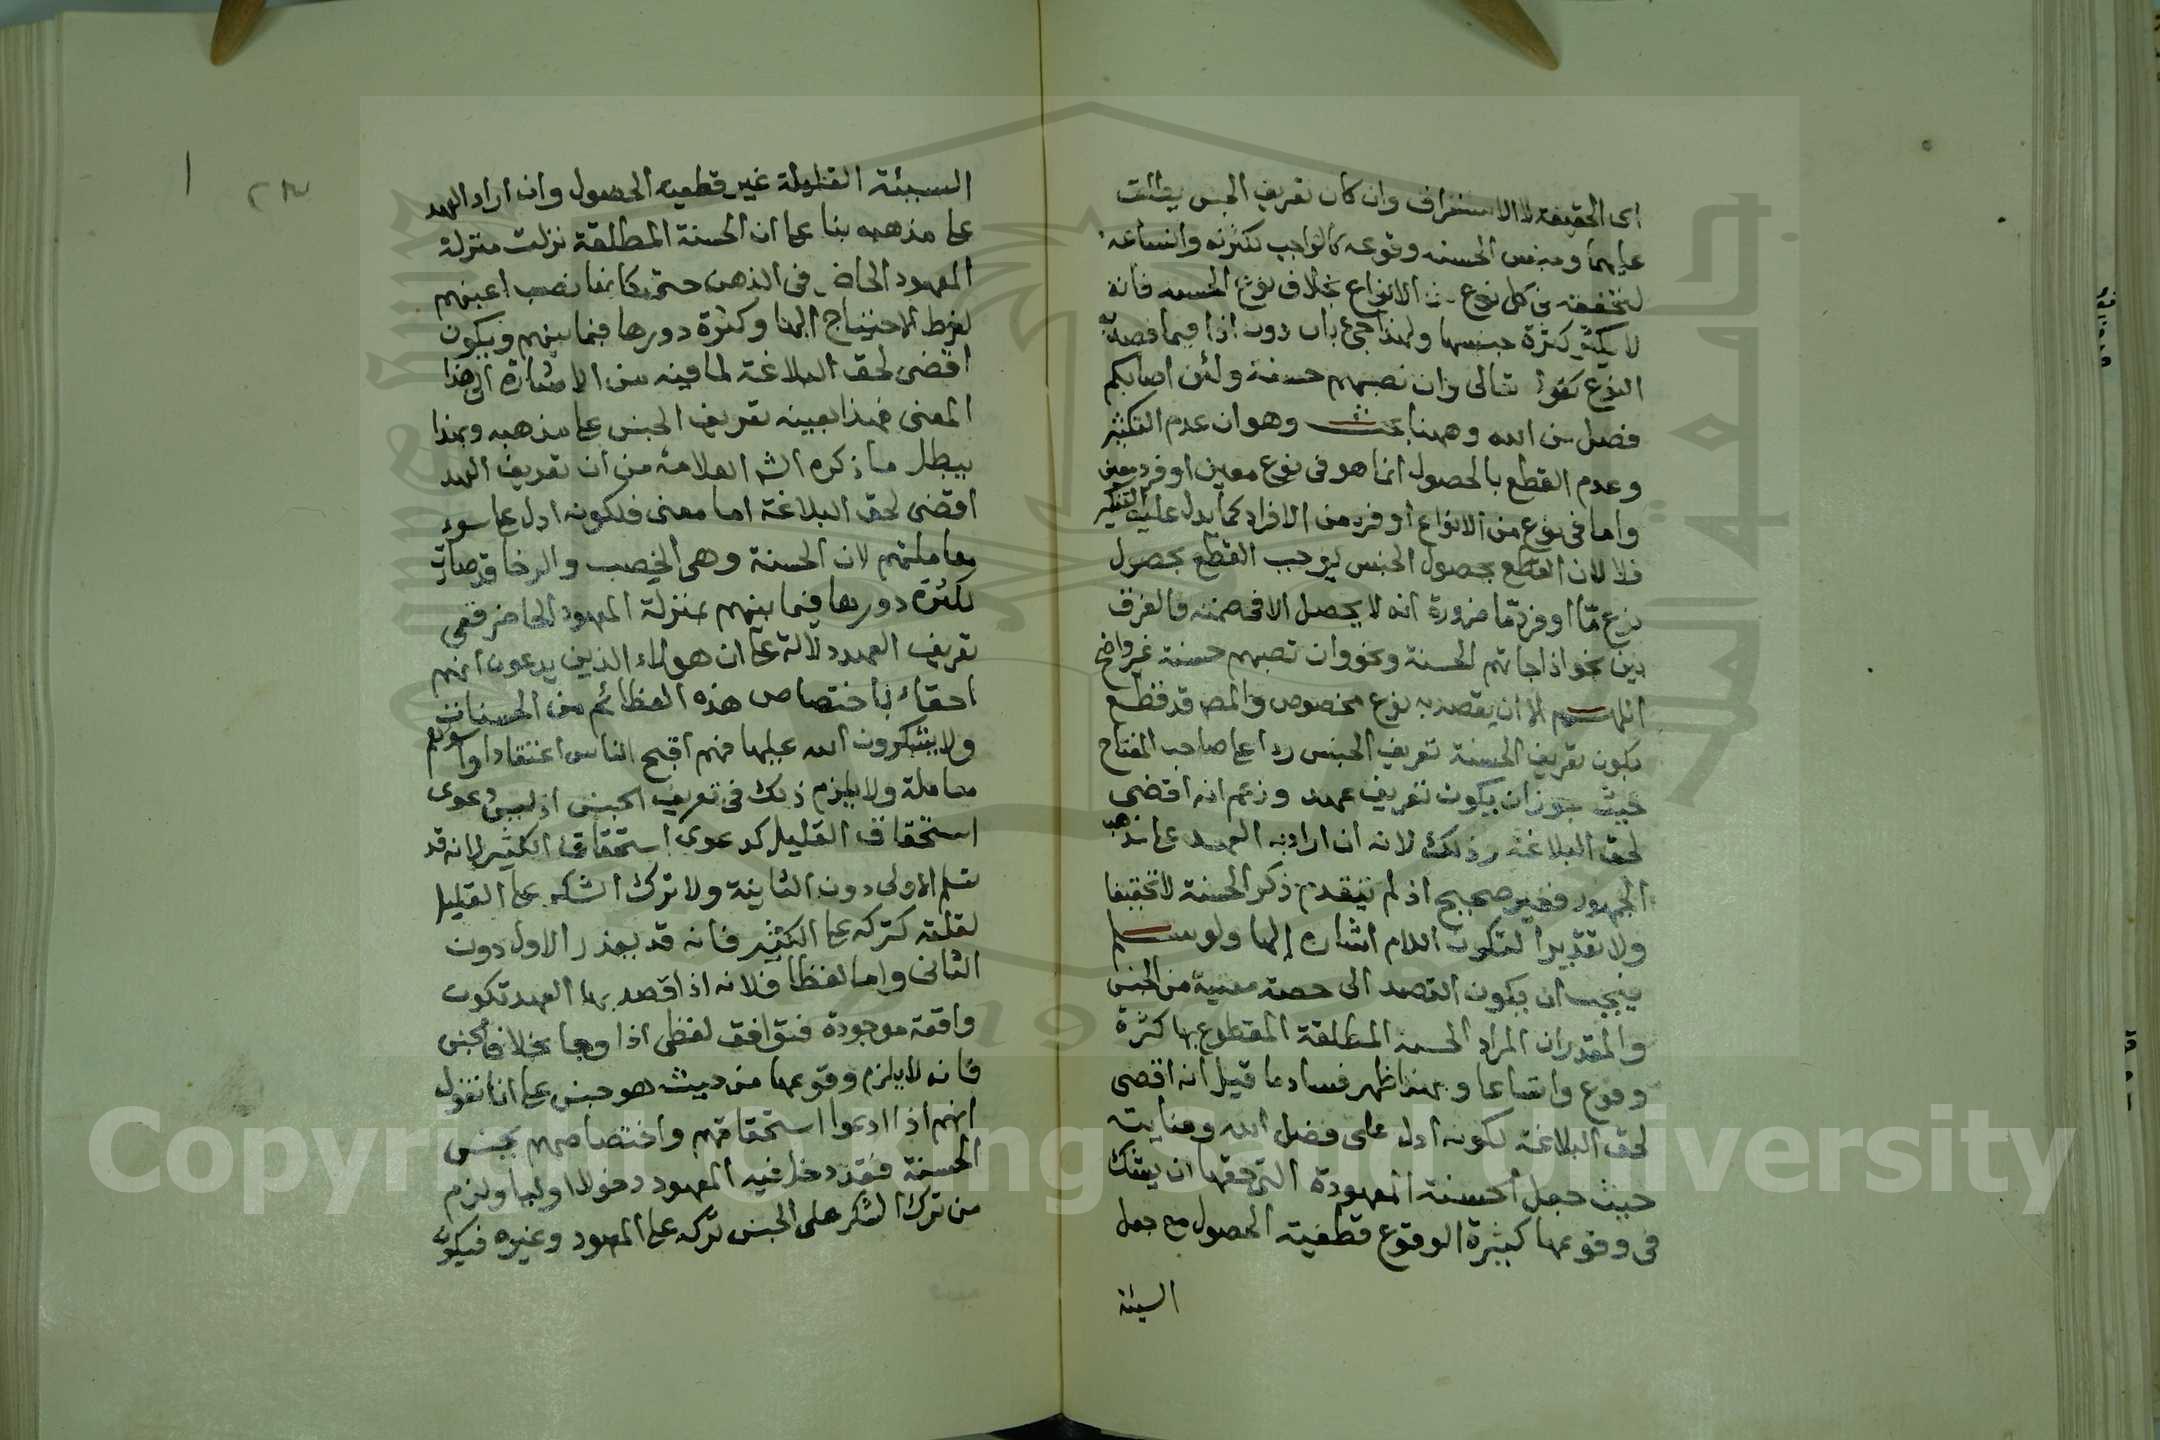 اى الحقيقة لا الاستغراق وان كان تعريف الجنس يطلق
عليهما وجنس الحسنه وقوعه كالواجب لكثرته واتساعه
لتحققه فى كل نوع من الانواع بخلاف نوع الحسنه فانه
لا يكثر كثرة جنسها ولهذا جئ بان دون اذا فيما قصد به
النوع كقوله تعالى وان تصبهم حسنة ولئن اصابكم
فضل من الله وههنا بحث وهو ان عدم التكثر
وعدم القطع بالحصول انما هو فى نوع معين او فرد معين
واما فى نوع من الانواع او فرد من الافراد كما يدل عليه التنكير
فلا لان القطع بحصول الجنس يوجب القطع بحصول
نوع ما او فرد ما ضرورة انه لا يحصل الا فى ضمنه فالفرق
بين نحو اذا جاتهم الحسنة ونحو وان تصبهم حسنة غير واضح
اللهم الا ان يقصد به نوع مخصوص والمص قد قطع
بكون تعريف الحسنة تعريف الجنس ردا على صاحب المفتاح
حيث جوز ان يكون تعريف عهد وزعم انه اقضى
لحق البلاغة وذلك لانه ان اراد به العهد على مذهب
الجمهور فغير صحيح اذ لم يتقدم ذكر الحسنة لا تحقيقا
ولا تقديرا لتكون اللام اشاره إليها ولو سلم
فيجب ان يكون القصد الى حصة معينة من الجنس
والمقدر ان المراد الحسنه المطلقة المقطوع بها كثرة
وقوع واتساعا وبهذا ظهر فساد ما قيل انه اقضى
لحق البلاغة لكونه ادل على فضل الله وعنايته
حيث جعل الحسنة المعهودة التى حقها ان يشك
فى وقوعها كثيرة الوقوع قطعية الحصول مع جعل
السيئة
السيئة القليلة غير قطعيه الحصول وان اراد العهد
على مذهبه بنا على ان الحسنة المطلقة نزلت منزلة
المعهود الحاضر فى الذهن حتى كانها نصب اعينهم
لفرط الاحتياج اليها وكثرة دورها فيما بينهم ويكون
اقضى لحق البلاغة لما فيه من الاشارة الى هذا
المعنى فهذا بعينه تعريف الجنس على مذهبه وبهذا
يبطل ما ذكره الش العلامة من ان تعريف العهد
اقضى لحق البلاغة اما معنى فلكونه ادل على سوء
معاملتهم لان الحسنة وهى الخصب والرخا قد صارت
لكثرة دورها فيما بينهم بمنزلة المعهود الحاضر ففى
تعريف العهد دلالة على ان هولاء الذين يدعون انهم
احقاء باختصاص هذه العظائم من الحسنات
ولا يشكرون الله عليها فهم اقبح الناس اعتقادا واسوئهم
معاملة ولا يلزم ذلك فى تعريف الجنس اذ ليس دعوى
استحقاق القليل كدعوى استحقاق الكثير لانه قد
تسلم الاولى دون الثانية ولا ترك الشكر على القليل
لقلته كتركه على الكثير فانه قد يعذر الاول دون
الثانى واما لفظا فلانه اذا قصد بها العهد تكون
واقعة موجودة فتوافق لفظى اذا وجا بخلاف الجنس
فانه لا يلزم وقوعها من حيث هو جنس على انا نقول
انهم اذا ادعوا استحقاقهم واختصاصهم بجنس
الحسنة فقد دخل فيه المعهود دخولا اوليا ولزم
من ترك الشكر على الجنس تركه على المعهود وغيره فيكون
Copyright © King Saud University